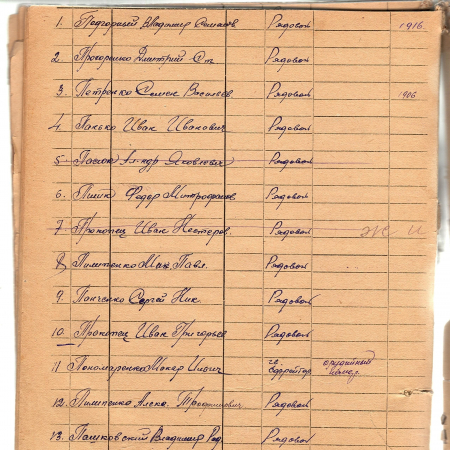 1. Подгорный Владимир Семенов Рядовой 1916
2 Прохоренко Дмитрий Ст. Рядовой
3. Петренко Семен Васильев Рядовой 1906
4. Панько Иван Иванович Рядовой
5. Пасюк Ал-ндр Яковлевич Рядовой
6. Пилик Федор Митрофанов Рядовой
7. Прокопец Иван Нестеров. Рядовой жив
8. Пилипенко Мих Павл. Рядовой
9. Панченко Сергей Ник. Рядовой
10. Прокопец Иван Григорьев Рядовой
11 Пономаренко Ефрейтор орудийный номер.
12. Пилипенко Алекс. Трофимович Рядовой
13. Пашковский Владимир Рядовой